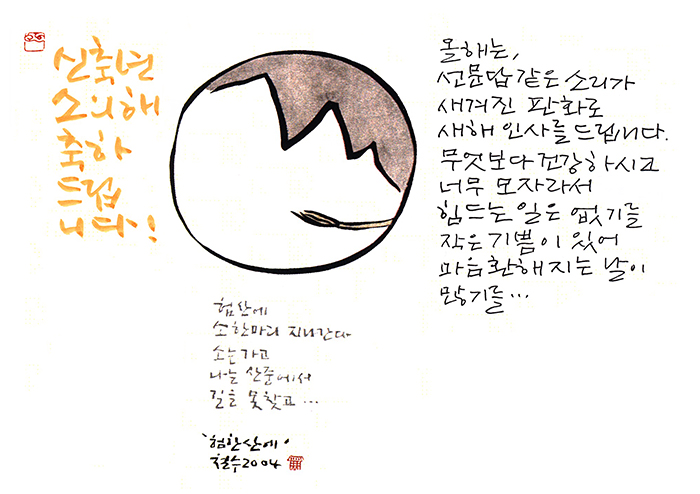 신축년
소의해
축하
드립
니다!
험산에
소한마리 지나간다
소는가고
나는 산중에서
길을 못찾고...
'험한산에'
철수2004
올해는,
선문답 같은 소리가
새겨진 판화로
새해 인사를 드립니다.
무엇보다 건강하시고
너무 모자라서
힘드는 일은 없기를
작은 기쁨이 있어
마음 환해지는 날이
많기를...